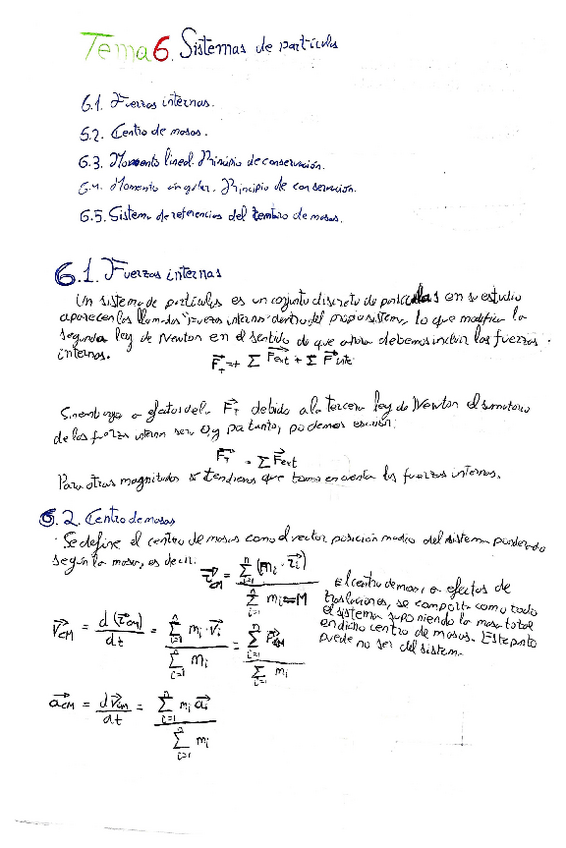 Tema 6. Sistemas de partículas
6.1. Fuerzas internas.
6.2. Centro de masas.
6.3. Momento lineal. Principio de conservación.
6.4. Momento angular. Principio de conservacion.
6.5. Sistema de referencias del centro de masas.
6.1. Fuerzas internas
Un sistema de partículas es un conjunto discreto de partículas en su estudio
aparecen las llamadas "fuerzas internas" dentro del propio sistema, lo que modifica la
segunda ley de Newton en el sentido de que ahora debemos incluir las fuerzas
internas.
F_T = + Σ F_ext + Σ F_inte
Sin embargo a efectos del F_T debido a la tercera ley de Newton el sumatorio
de las fuerza interna sera 0, y por tanto, podemos escribir:
F_T = Σ F_ext
Para otras magnitudes tendremos que tomar en cuenta las fuerzas internas.
6.2. Centro de masas
· Se define el centro de masas como el vector posición medio del sistema ponderado
según la masa, es decir.
r_CM = Σ_{i=1}^{n} (m_i · r_i) / Σ_{i=1}^{n} m_i = M
El centro de masas, a efectos de
traslaciones, se comporta como todo
el sistema suponiendo la masa total
en dicho centro de masas. Este punto
puede no ser del sistema.
v_CM = d(r_CM) / dt = Σ_{i=1}^{n} m_i · v_i / Σ_{i=1}^{n} m_i = Σ_{i=1}^{n} P_CM / Σ_{i=1}^{n} m_i
a_CM = d v_CM / dt = Σ_{i=1}^{n} m_i a_i / Σ_{i=1}^{n} m_i